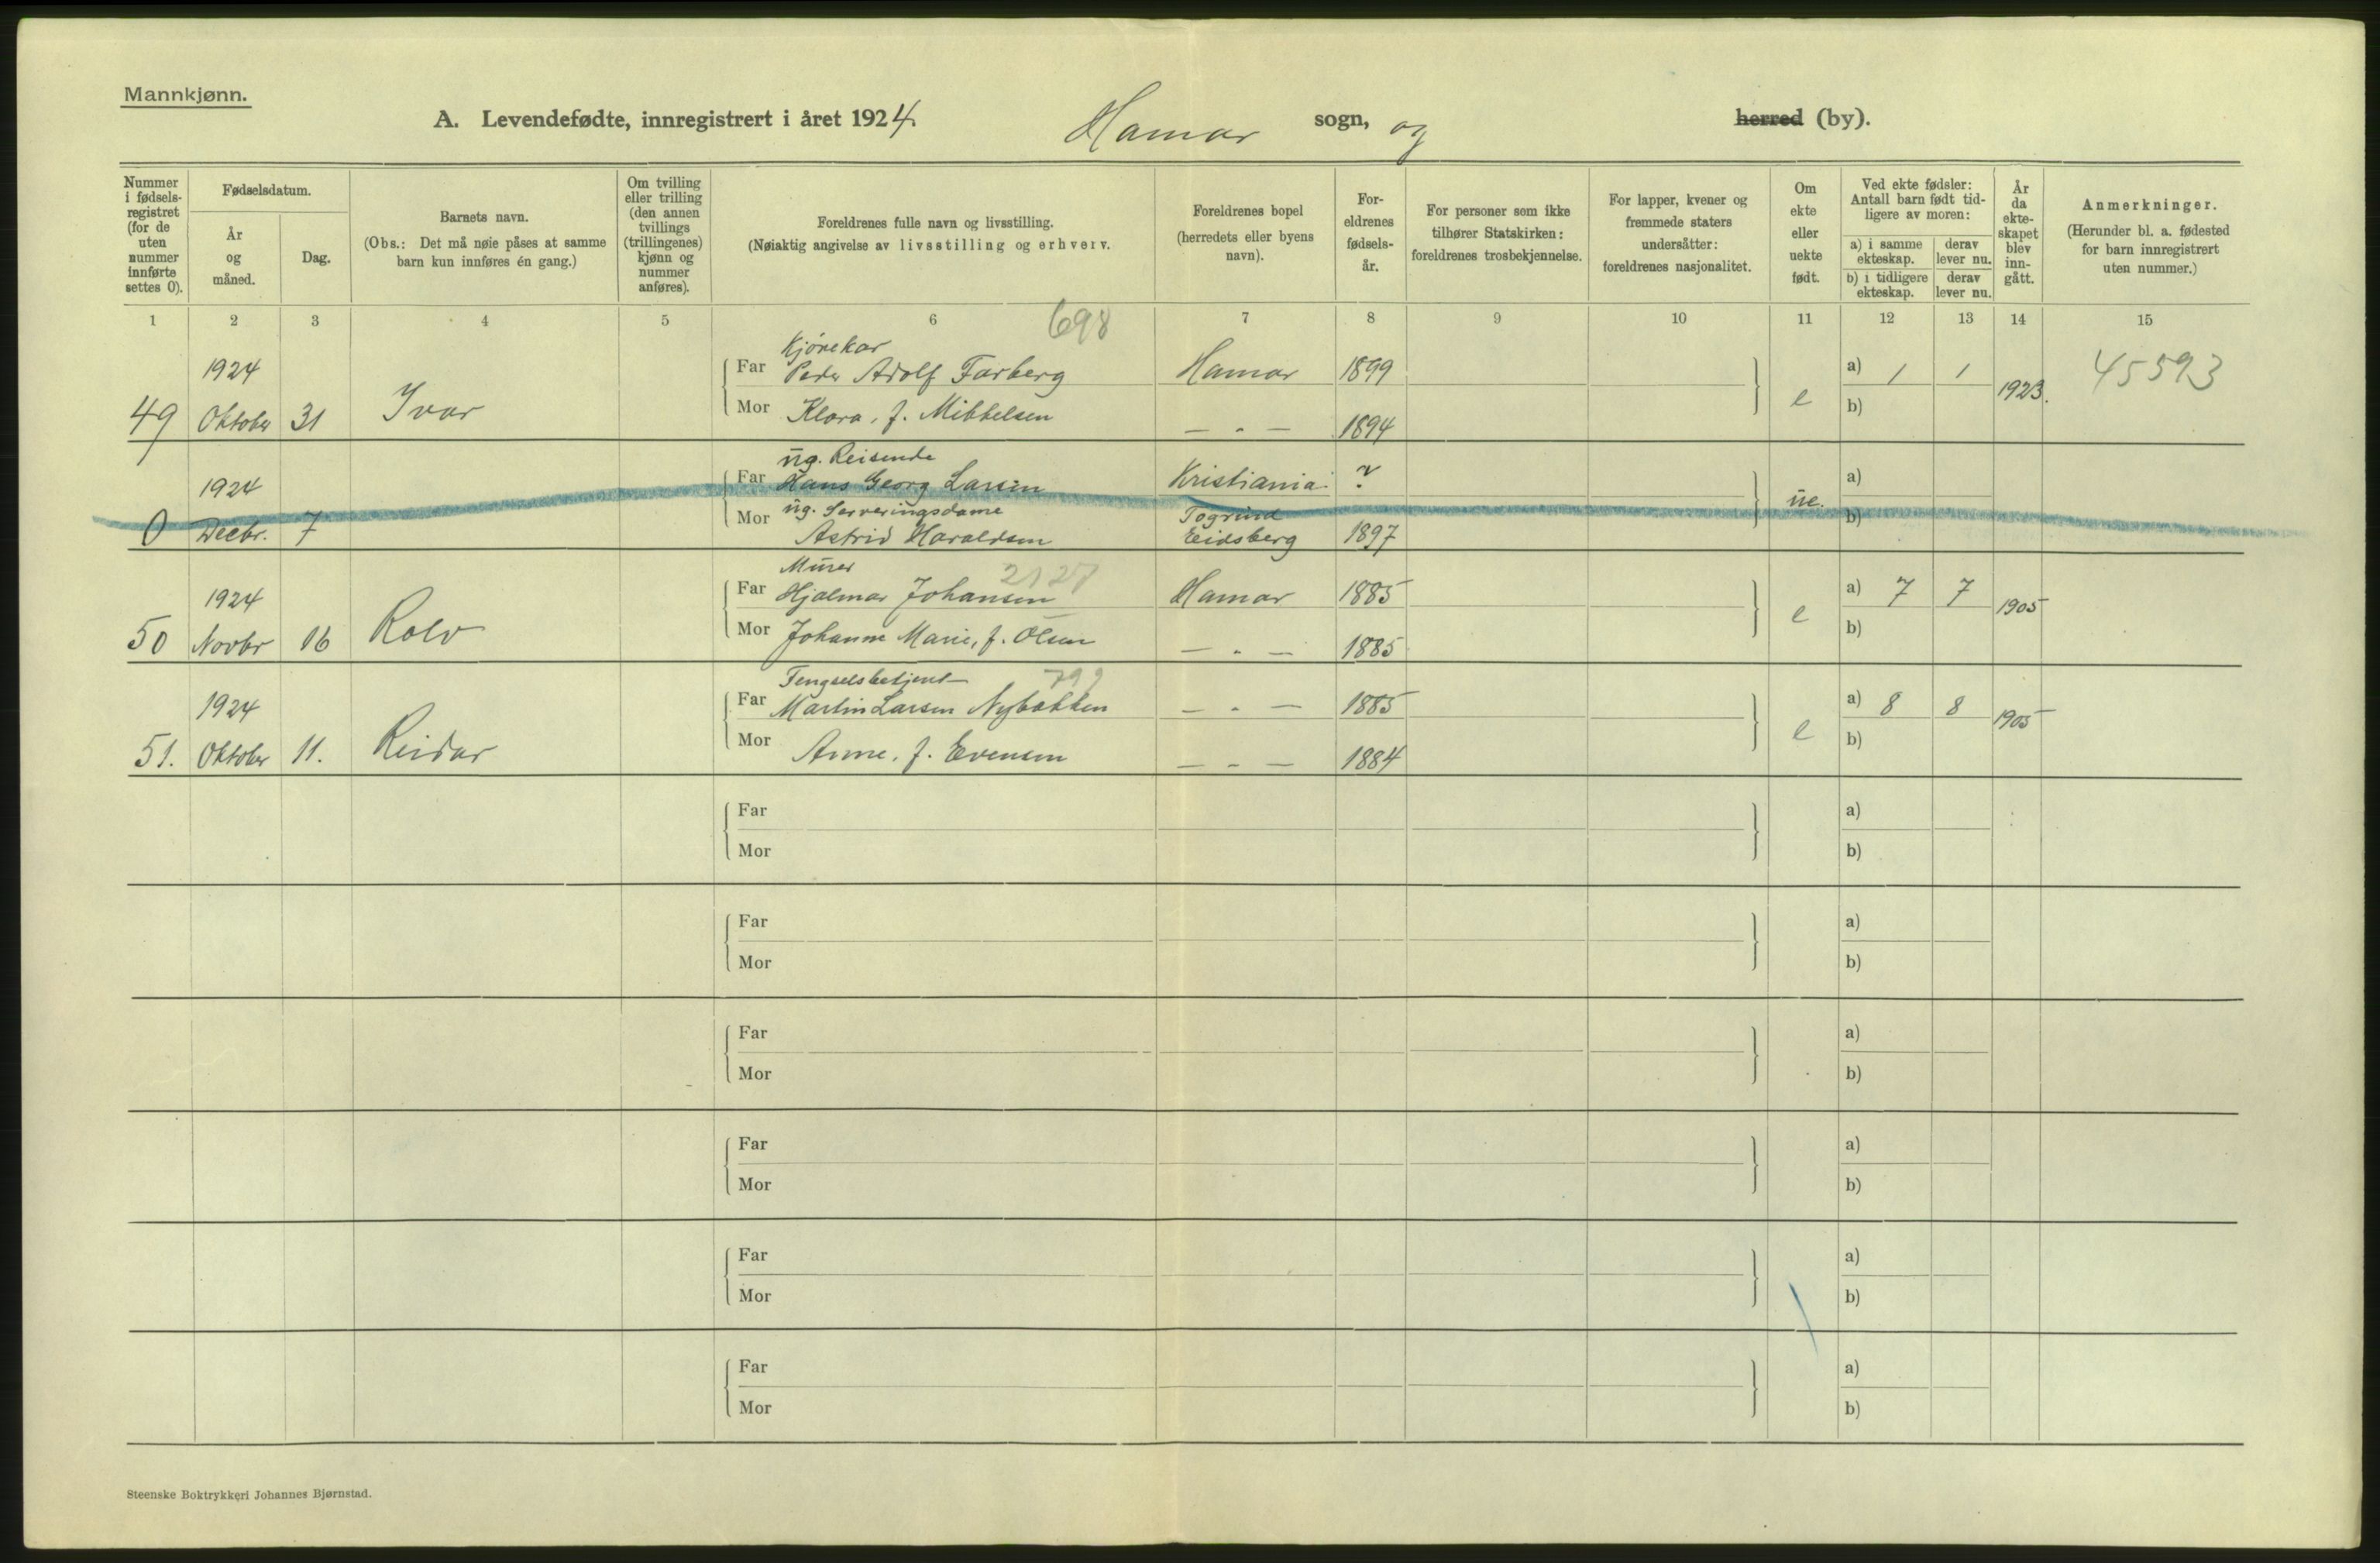 Mannkjønn.
A. Levendefødte, innregistrert i året 1924. Hamar sogn, og herred (by).
Nummer i fødsels-registret (for de uten nummer innførte settes 0).
Fødselsdatum.
År og måned.
Dag.
Barnets navn.
(Obs.: Det må nøie påses at samme barn kun innføres én gang.)
Om tvilling eller trilling (den annen tvillings (trillingenes) kjønn og nummer anføres).
Foreldrenes fulle navn og livsstilling.
(Nøiaktig angivelse av livsstilling og erhverv.
Foreldrenes bopel (herredets eller byens navn).
For-eldrenes fødsels-år.
For personer som ikke tilhører Statskirken: foreldrenes trosbekjennelse.
For lapper, kvener og fremmede staters undersåtter: foreldrenes nasjonalitet.
Om ekte eller uekte født.
Ved ekte fødsler: Antall barn født tid-ligere av moren:
a) i samme ekteskap. derav lever nu.
b) i tidligere ekteskap. derav lever nu.
År da ekte-skapet blev inn-gått.
Anmerkninger.
(Herunder bl. a. fødested for barn innregistrert uten nummer.)
1 2 3 4 5 6 7 8 9 10 11 12 13 14 15
698
Kjørekar
1924 Far Peder Adolf Farberg Hamar 1899 a) 1 1 1923. 45593
49 Oktober 31 Ivar Mor Klara, f. Mikkelsen — „ — 1894 e b)
ug. Reisende
1924 Far Hans Georg Larsen Kristiania ? a)
ug. Serveringsdame
0 Decbr. 7 Mor Astrid Haraldsen Eidsberg 1897 ue. b)
Murer 2127
1924 Far Hjalmar Johansen Hamar 1885 a) 7 7 1905
50 Novbr 16 Rolv Mor Johanne Marie, f. Olsen — „ — 1885 e b)
Fengselsbetjent 799
1924 Far Martin Larsen Nybakken — „ — 1885 a) 8 8 1905
51. Oktober 11. Reidar Mor Anne, f. Evensen — „ — 1884 e b)
Far a)
Mor b)
Far a)
Mor b)
Far a)
Mor b)
Far a)
Mor b)
Far a)
Mor b)
Far a)
Mor b)
Steenske Boktrykkeri Johannes Bjørnstad.